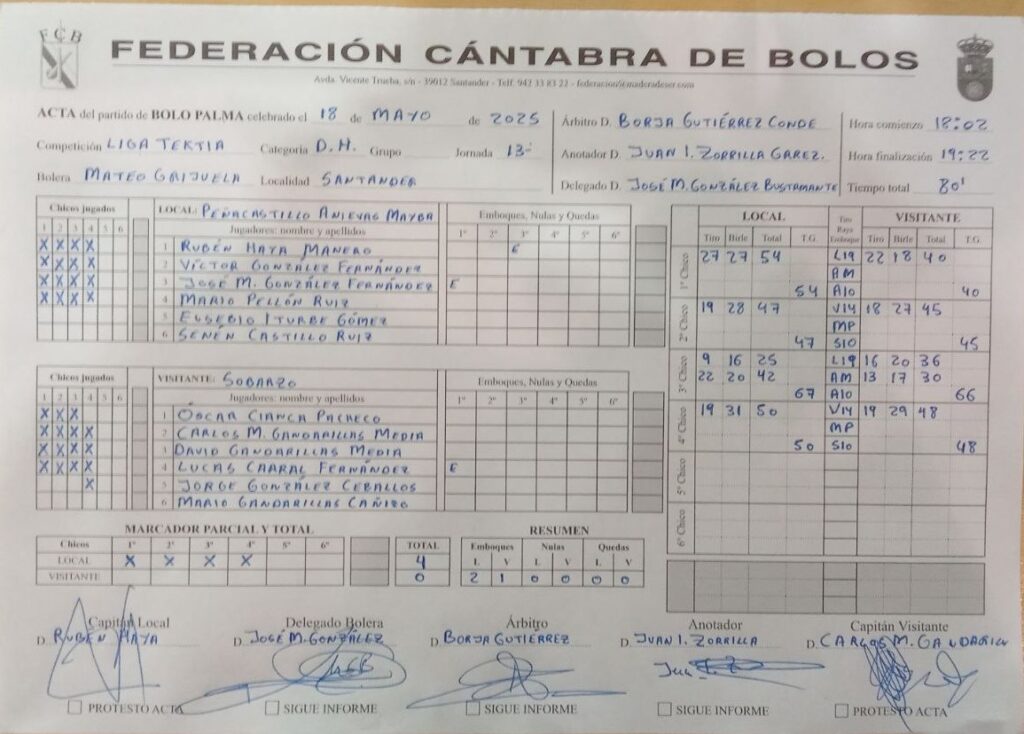 FCB
FEDERACIÓN CÁNTABRA DE BOLOS
Avda. Vicente Trueba, s/n - 39012 Santander - Telf. 942 33 83 22 - federacion@maderadeser.com
ACTA del partido de BOLO PALMA celebrado el 18 de MAYO de 2025
Competición LIGA TERTIA Categoría D.H. Grupo Jornada 13-
Bolera MATEO GRIJUELA Localidad SANTANDER
Árbitro D. BORJA GUTIÉRREZ CONDE
Anotador D. JUAN I. ZORRILLA GAREZ.
Delegado D. JOSÉ M. GONZÁLEZ BUSTAMANTE
Hora comienzo 18:02
Hora finalización 19:22
Tiempo total 80'
Chicos jugados LOCAL: PEÑACASTILLO ANIEVAS MAYBA Emboques, Nulas y Quedas
1 2 3 4 5 6 Jugadores: nombre y apellidos 1º 2º 3º 4º 5º 6º
X X X X 1 RUBÉN HAYA MANERO E
X X X X 2 VÍCTOR GONZÁLEZ FERNÁNDEZ
X X X X 3 JOSÉ M. GONZÁLEZ FERNÁNDEZ E
X X X X 4 MARIO PELLÓN RUIZ
5 EUSEBIO ITURBE GÓMEZ
6 SENÉN CASTILLO RUIZ
Chicos jugados VISITANTE: SOBARZO Emboques, Nulas y Quedas
1 2 3 4 5 6 Jugadores: nombre y apellidos 1º 2º 3º 4º 5º 6º
X X X 1 ÓSCAR CIANCA PACHECO
X X X X 2 CARLOS M. GANDARILLAS MEDIA
X X X X 3 DAVID GANDARILLAS MEDIA
X X X X 4 LUCAS CARRAL FERNÁNDEZ E
X 5 JORGE GONZÁLEZ CEBALLOS
6 MARIO GANDARILLAS CAÑIZO
LOCAL Tiro Raya Emboque VISITANTE
Tiro Birle Total T.G. Tiro Birle Total T.G.
1º Chico 27 27 54 L19 22 18 40
AM
54 A10 40
2º Chico 19 28 47 V14 18 27 45
MP
47 S10 45
3º Chico 9 16 25 L19 16 20 36
22 20 42 AM 13 17 30
67 A10 66
4º Chico 19 31 50 V14 19 29 48
MP
50 S10 48
5º Chico
6º Chico
MARCADOR PARCIAL Y TOTAL
Chicos 1º 2º 3º 4º 5º 6º TOTAL
LOCAL X X X X 4
VISITANTE 0
RESUMEN
Emboques Nulas Quedas
L V L V L V
2 1 0 0 0 0
Capitán Local Delegado Bolera Árbitro Anotador Capitán Visitante
D. RUBÉN HAYA D. JOSÉ M. GONZÁLEZ D. BORJA GUTIÉRREZ D. JUAN I. ZORRILLA D. CARLOS M. GANDARILL
PROTESTO ACTA SIGUE INFORME SIGUE INFORME SIGUE INFORME PROTESTO ACTA